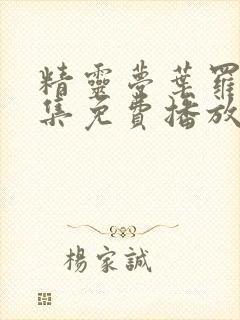 精靈夢葉羅
集免費播放
楊家誠